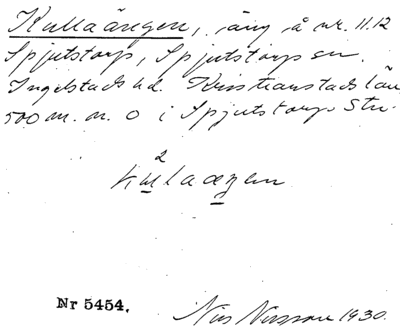 Kullaängen, äng å nr. 11.12
Spjutstorp, Spjutstorps sn.
Ingelstads hd. Kristianstads län
500 m. n. O i Spjutstorps Stn.
2
kulaæŋen
Nr 5454.
Nils Nilsson 1930.